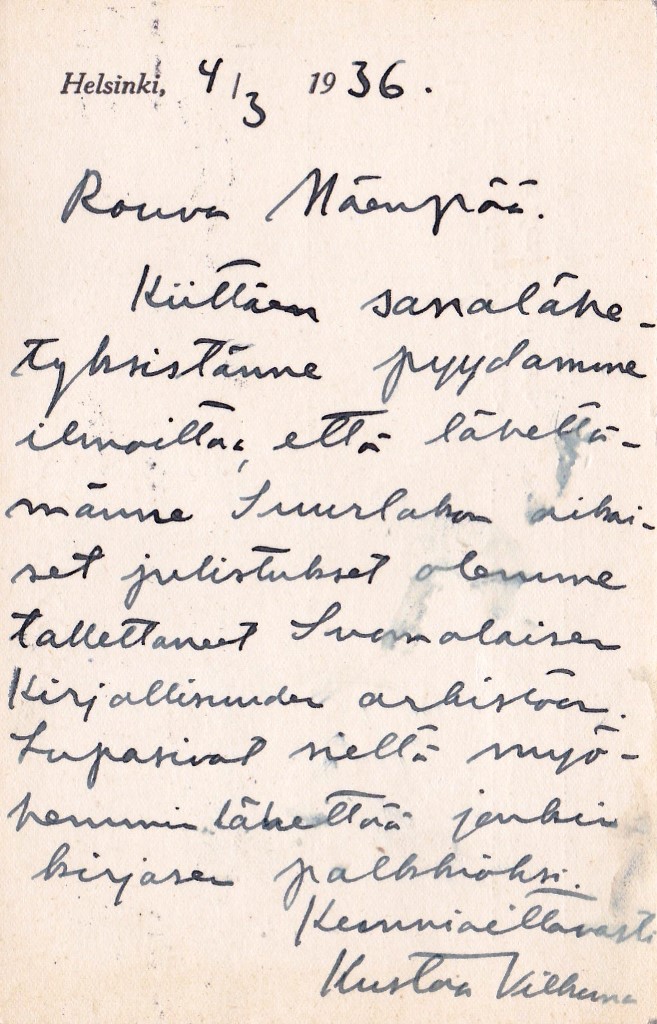 Helsinki, 4/3 1936.
Rouva Mäenpää.
Kiittäen sanalähe-
tyksistänne pyydämme
ilmoittaa, että lähettä-
männe Suurlakon aikai-
set julistukset olemme
tallettaneet Suomalaisen
Kirjallisuuden arkistoon.
Lupasivat sieltä myö-
hemmin lähettää jonkin
kirjasen palkkioksi.
Kunnioittavasti
Kustaa Vilkuna